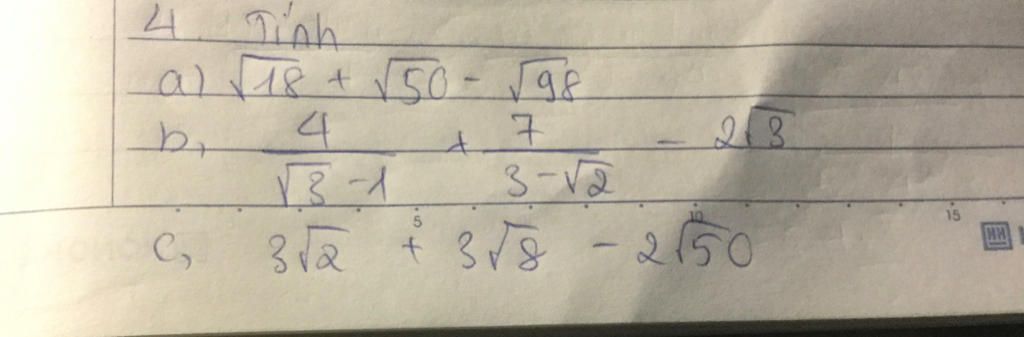 4. Tính
a) √18 + √50 - √98
b, 4/(√3 - 1) + 7/(3 - √2) - 2√3
5 10 15
c, 3√2 + 3√8 - 2√50